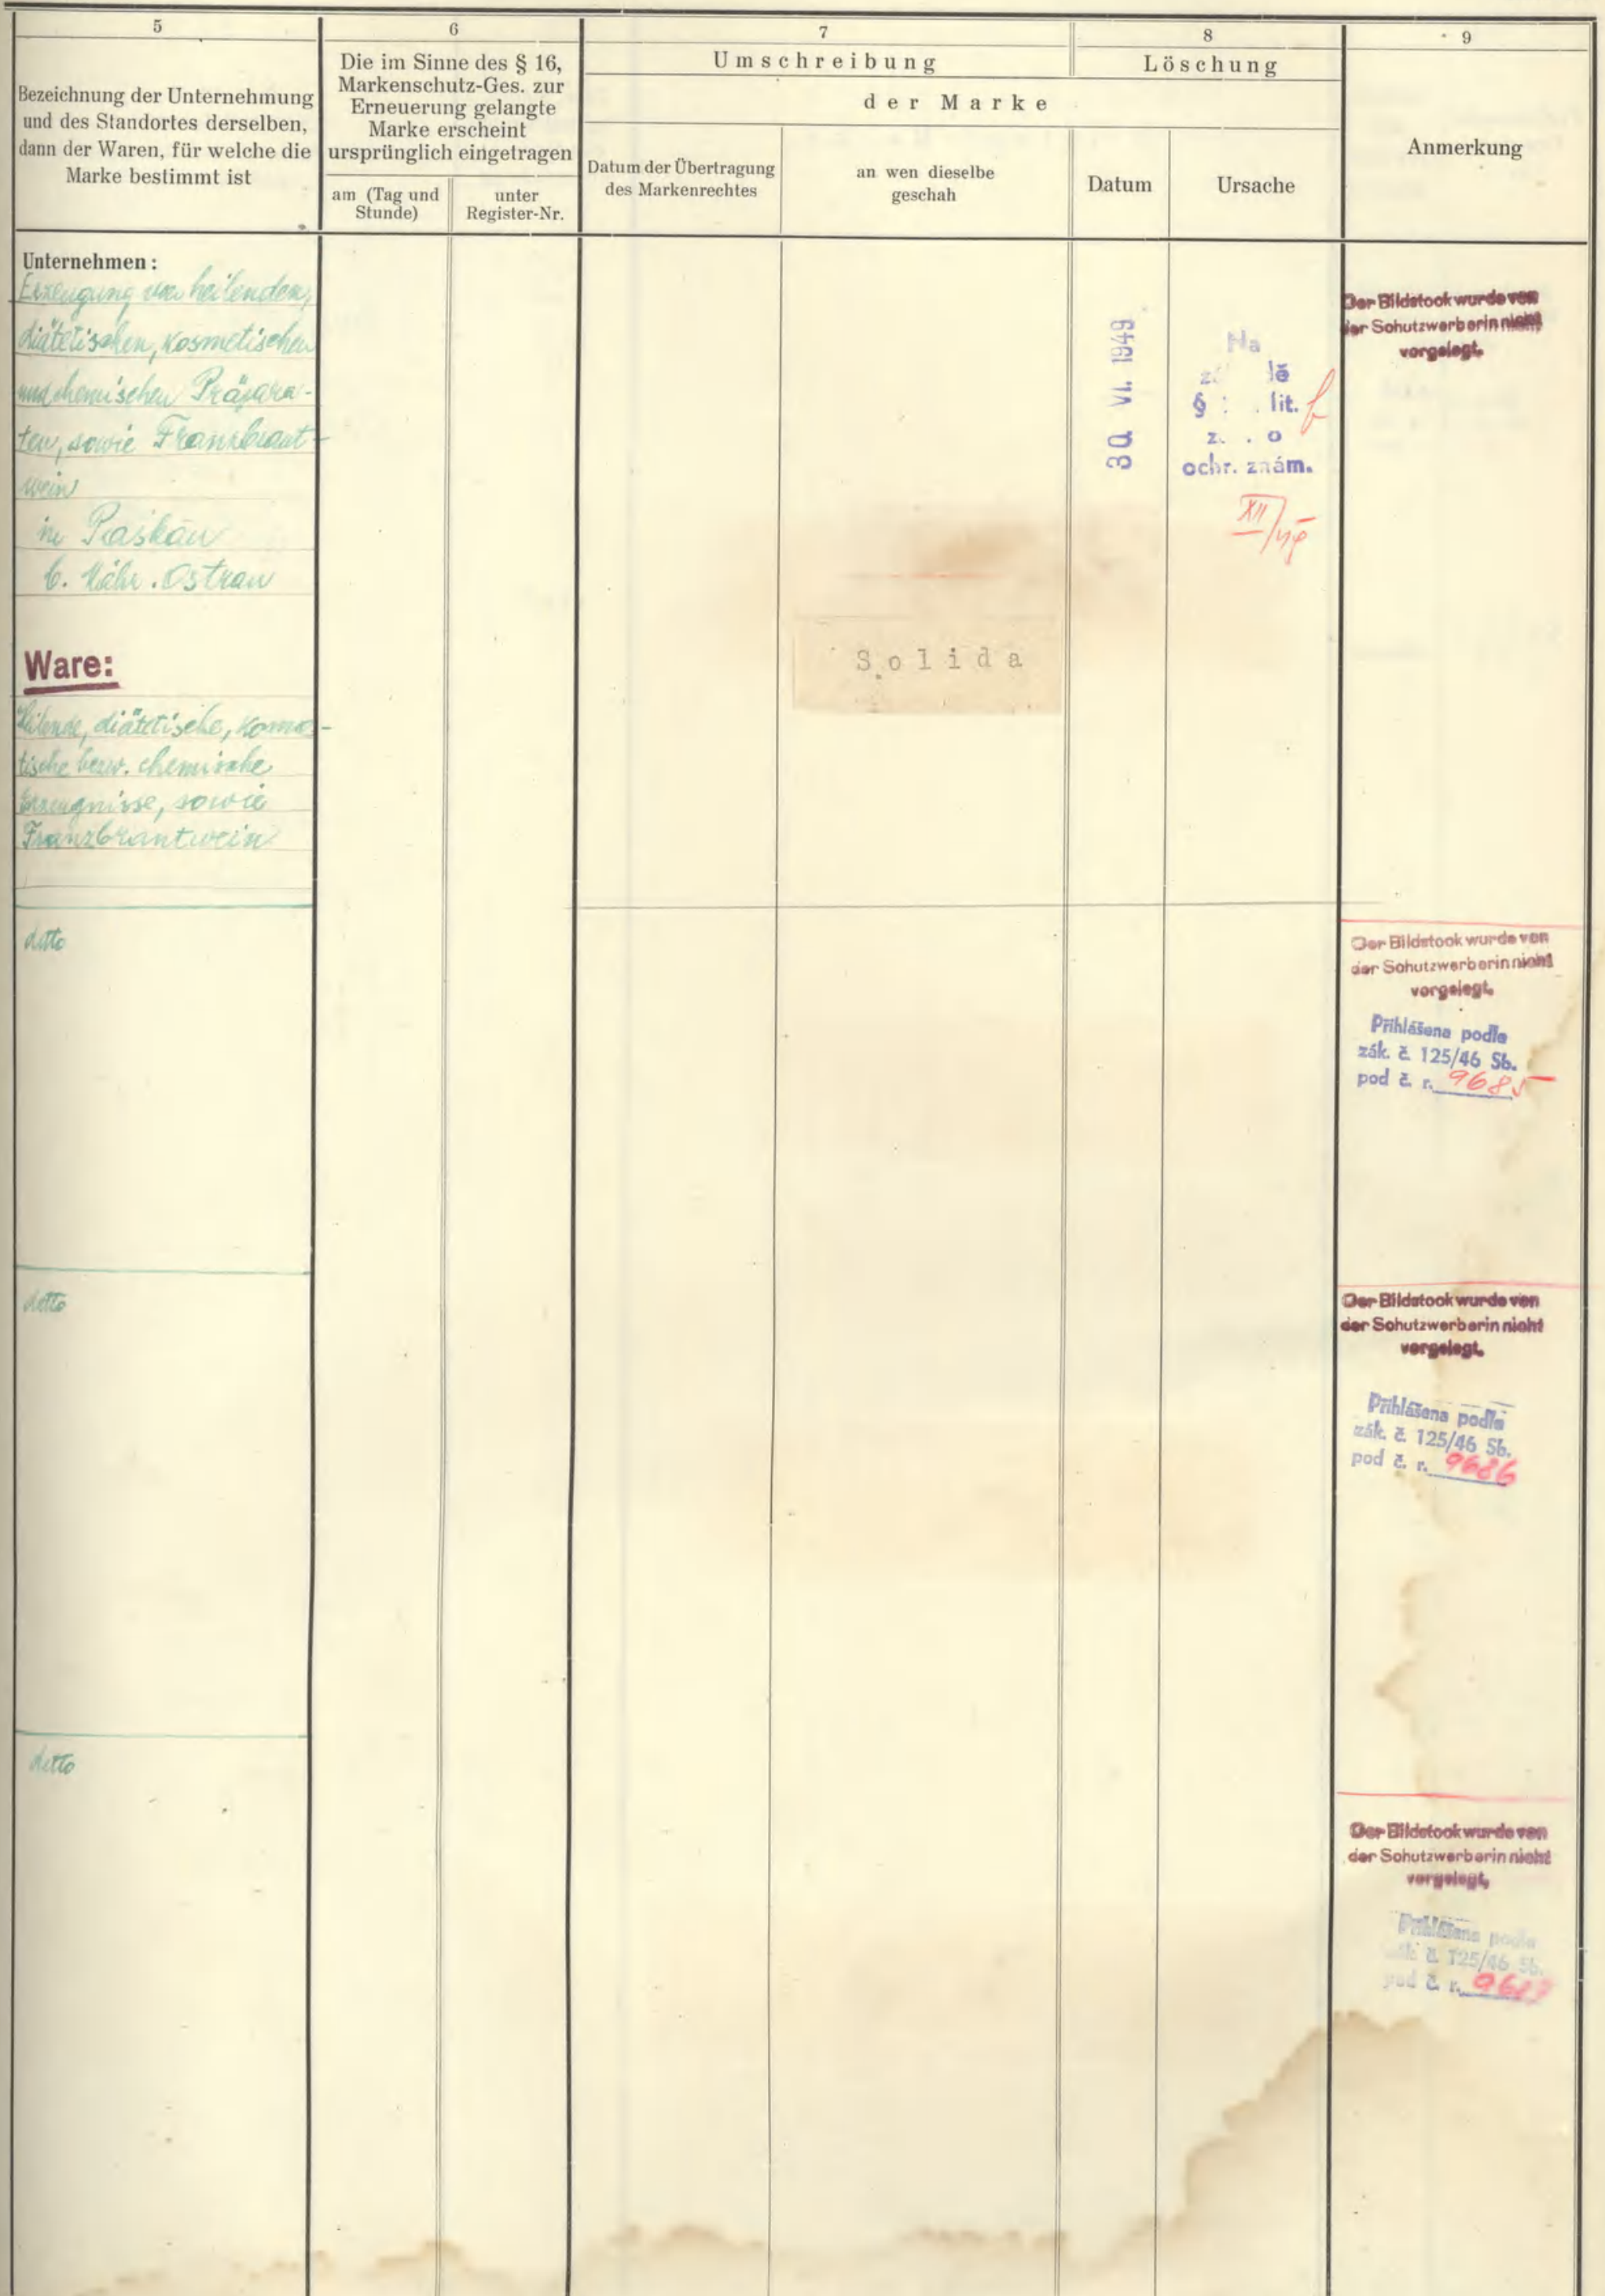 5
Bezeichnung der Unternehmung
und des Standortes derselben,
dann der Waren, für welche die
Marke bestimmt ist
6
Die im Sinne des § 16,
Markenschutz-Ges. zur
Erneuerung gelangte
Marke erscheint
ursprünglich eingetragen
am (Tag und
Stunde)
unter
Register-Nr.
7
Umschreibung
8
Löschung
der Marke
Datum der Übertragung
des Markenrechtes
an wen dieselbe
geschah
Datum
Ursache
9
Anmerkung
Unternehmen:
Erzeugung von heilenden,
diätetischen, kosmetischen
und chemischen Präpara-
ten, sowie Franzbrant-
wein
in Paskau
b. Mähr. Ostrau
Ware:
Heilende, diätetische, kosme-
tische bezw. chemische
Erzeugnisse, sowie
Franzbrantwein
Solida
30. VI. 1949
Na
§ lit. f
ochr. znám.
Der Bildstock wurde von
der Schutzwerberin nicht
vorgelegt.
detto
Der Bildstock wurde von
der Schutzwerberin nicht
vorgelegt.
Přihlášena podle
zák. č. 125/46 Sb.
pod č. r. 9685
detto
Der Bildstock wurde von
der Schutzwerberin nicht
vorgelegt.
Přihlášena podle
zák. č. 125/46 Sb.
pod č. r. 9686
detto
Der Bildstock wurde von
der Schutzwerberin nicht
vorgelegt.
Přihlášena podle
zák. č. 125/46 Sb.
pod č. r. 9687